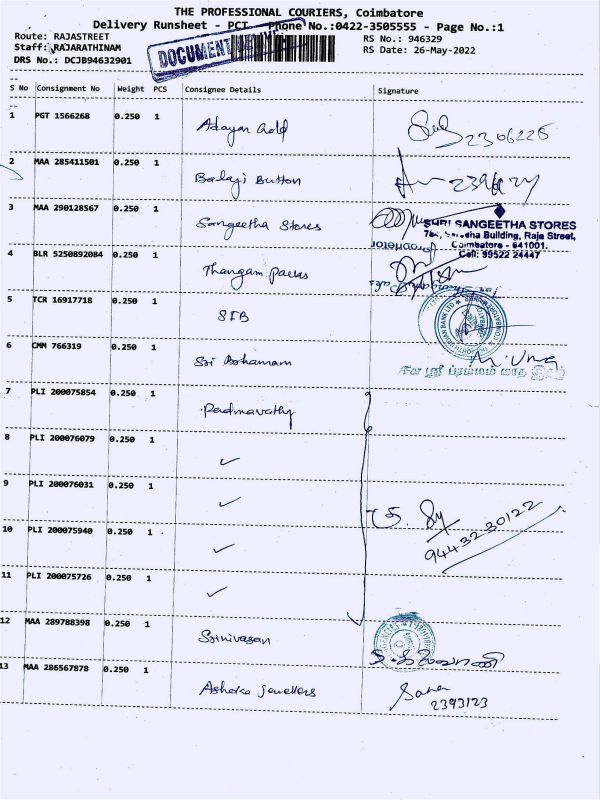 THE PROFESSIONAL COURIERS, Coimbatore
Delivery Runsheet - PCT Phone No.:0422-3505555 - Page No.:1
Route: RAJASTREET
RS No.: 946329
Staff: RAJARATHINAM
RS Date: 26-May-2022
DRS No.: DCJB94632901
DOCUMENT
S No Consignment No Weight PCS Consignee Details Signature
1 PGT 1566268 0.250 1 Adayar Gold 2306226
2 MAA 285411501 0.250 1 Balaji Button
3 MAA 290128567 0.250 1 Sangeetha Stores
SHRI SANGEETHA STORES
Building, Raja Street,
Coimbatore - 641001.
Cell: 99522 24447
4 BLR 5250892084 0.250 1 Thangam
5 TCR 16917718 0.250 1 SIB
6 CMM 766319 0.250 1 Sri
7 PLI 200075854 0.250 1 Padmavathy
8 PLI 200076079 0.250 1 ✓
9 PLI 200076031 0.250 1 ✓
9443230122
10 PLI 200075940 0.250 1 ✓
11 PLI 200075726 0.250 1 ✓
12 MAA 289788398 0.250 1 Srinivasan
13 MAA 286567878 0.250 1 Ashoka Jewellers
2393123